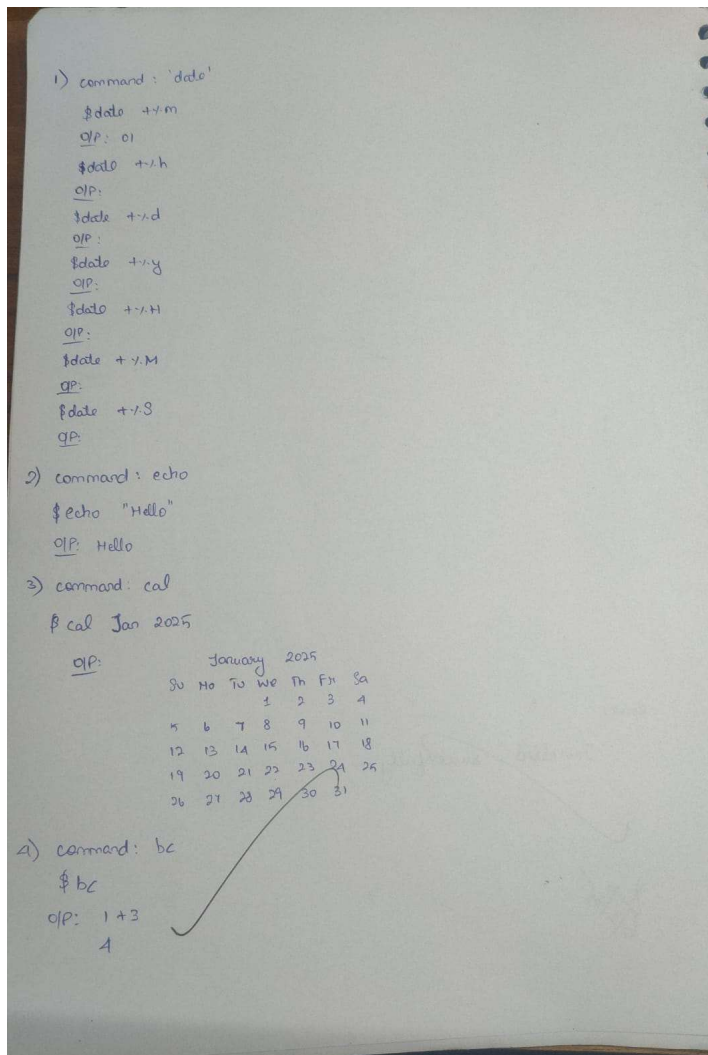 1) command : 'date'
$date +%m
O/P: 01
$date +%h
O/P:
$date +%d
O/P:
$date +%y
O/P:
$date +%H
O/P:
$date +%M
O/P:
$date +%S
O/P:
2) command : echo
$echo "Hello"
O/P: Hello
3) command: cal
$ cal Jan 2025
O/P: January 2025
Su Mo Tu We Th Fr Sa
1 2 3 4
5 6 7 8 9 10 11
12 13 14 15 16 17 18
19 20 21 22 23 24 25
26 27 28 29 30 31
4) command: bc
$ bc
O/P: 1+3
4